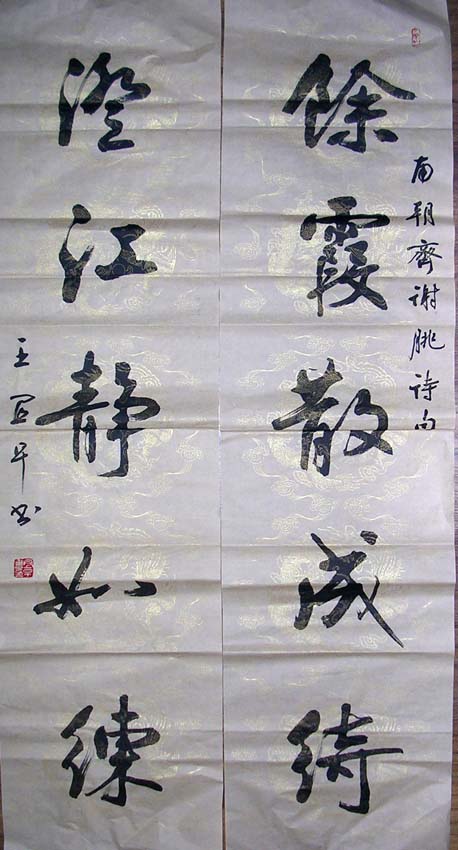 南朝齊謝朓詩句
餘霞散成綺
澄江静如練
王
平书